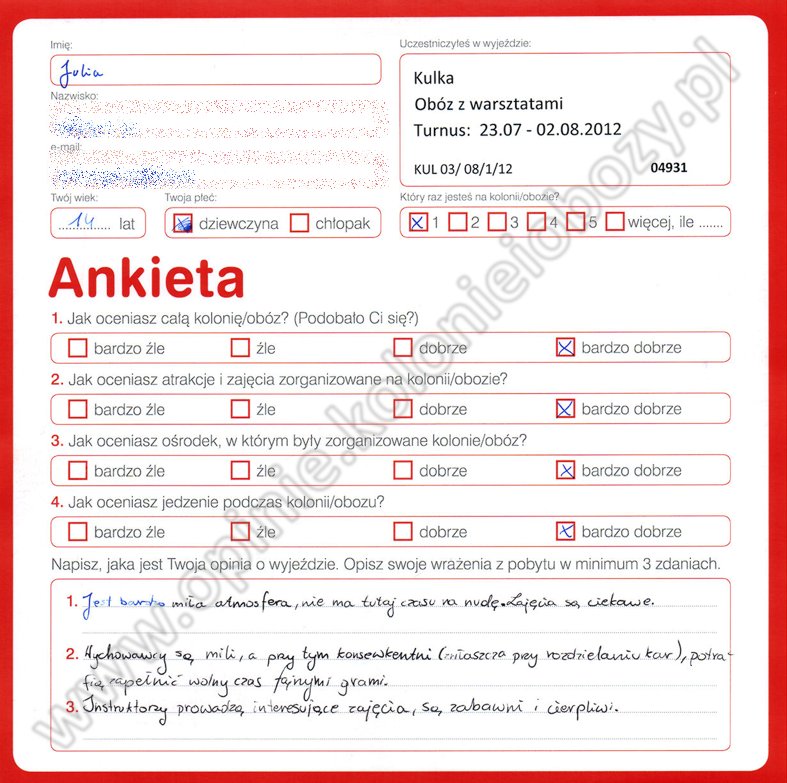 Imię:
Julia
Uczestniczyłeś w wyjeździe:
Kulka
Obóz z warsztatami
Turnus: 23.07 - 02.08.2012
KUL 03/ 08/1/12 04931
Nazwisko:
e-mail:
Twój wiek:
14 lat
Twoja płeć:
dziewczyna chłopak
Który raz jesteś na kolonii/obozie?
1 2 3 4 5 więcej, ile .......
Ankieta
1. Jak oceniasz całą kolonię/obóz? (Podobało Ci się?)
bardzo źle źle dobrze bardzo dobrze
2. Jak oceniasz atrakcje i zajęcia zorganizowane na kolonii/obozie?
bardzo źle źle dobrze bardzo dobrze
3. Jak oceniasz ośrodek, w którym były zorganizowane kolonie/obóz?
bardzo źle źle dobrze bardzo dobrze
4. Jak oceniasz jedzenie podczas kolonii/obozu?
bardzo źle źle dobrze bardzo dobrze
Napisz, jaka jest Twoja opinia o wyjeździe. Opisz swoje wrażenia z pobytu w minimum 3 zdaniach.
1. Jest bardzo miła atmosfera, nie ma tutaj czasu na nudę. Zajęcia są ciekawe.
2. Wychowawcy są mili, a przy tym konsewkentni (zwłaszcza przy rozdzielaniu kar), potra-
fią zapełnić wolny czas fajnymi grami.
3. Instruktorzy prowadzą interesujące zajęcia, są zabawni i cierpliwi.
www.opinie.kolonieiobozy.pl